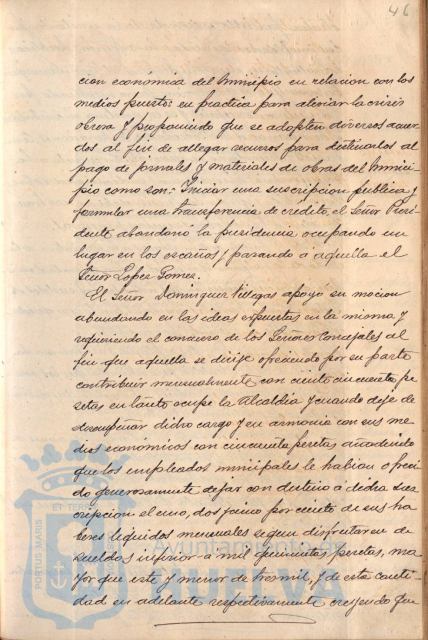 46
cion económica del Municipio en relacion con los
medios puestos en practica para aliviar la crisis
obrera y proponiendo que se adopten diversos acuer-
dos al fin de allegar recursos para destinarlos al
pago de jornales y materiales de obras del Munici-
pio como son: Iniciar una suscripcion publica y
formular una transferencia de crédito, el Señor Presi-
dente abandonó la presidencia ocupando un
lugar en los escaños y pasando á aquella el
Señor Lopez Gomez.
El Señor Dominguez Villegas apoyó su mocion
abundando en las ideas expuestas en la misma y
requiriendo el concurso de los Señores Concejales al
fin que aquella se dirije ofreciendo por su parte
contribuir mensualmente con ciento cincuenta pe-
setas en tanto ocupe la Alcaldia y cuando deje de
desempeñar dicho cargo y en armonia con sus me-
dios económicos con cincuenta pesetas, añadiendo
que los empleados municipales le habian ofreci-
do generosamente dejar con destino á dicha sus-
cripcion el uno, dos y cinco por ciento de sus ha-
beres líquidos mensuales segun disfrutaren de
sueldos inferior a mil quinientas pesetas, ma-
yor que este y menor de tres mil, y de esta canti-
dad en adelante respectivamente creyendo que
PORTUS MARIS
ET TERRAE
HUELVA